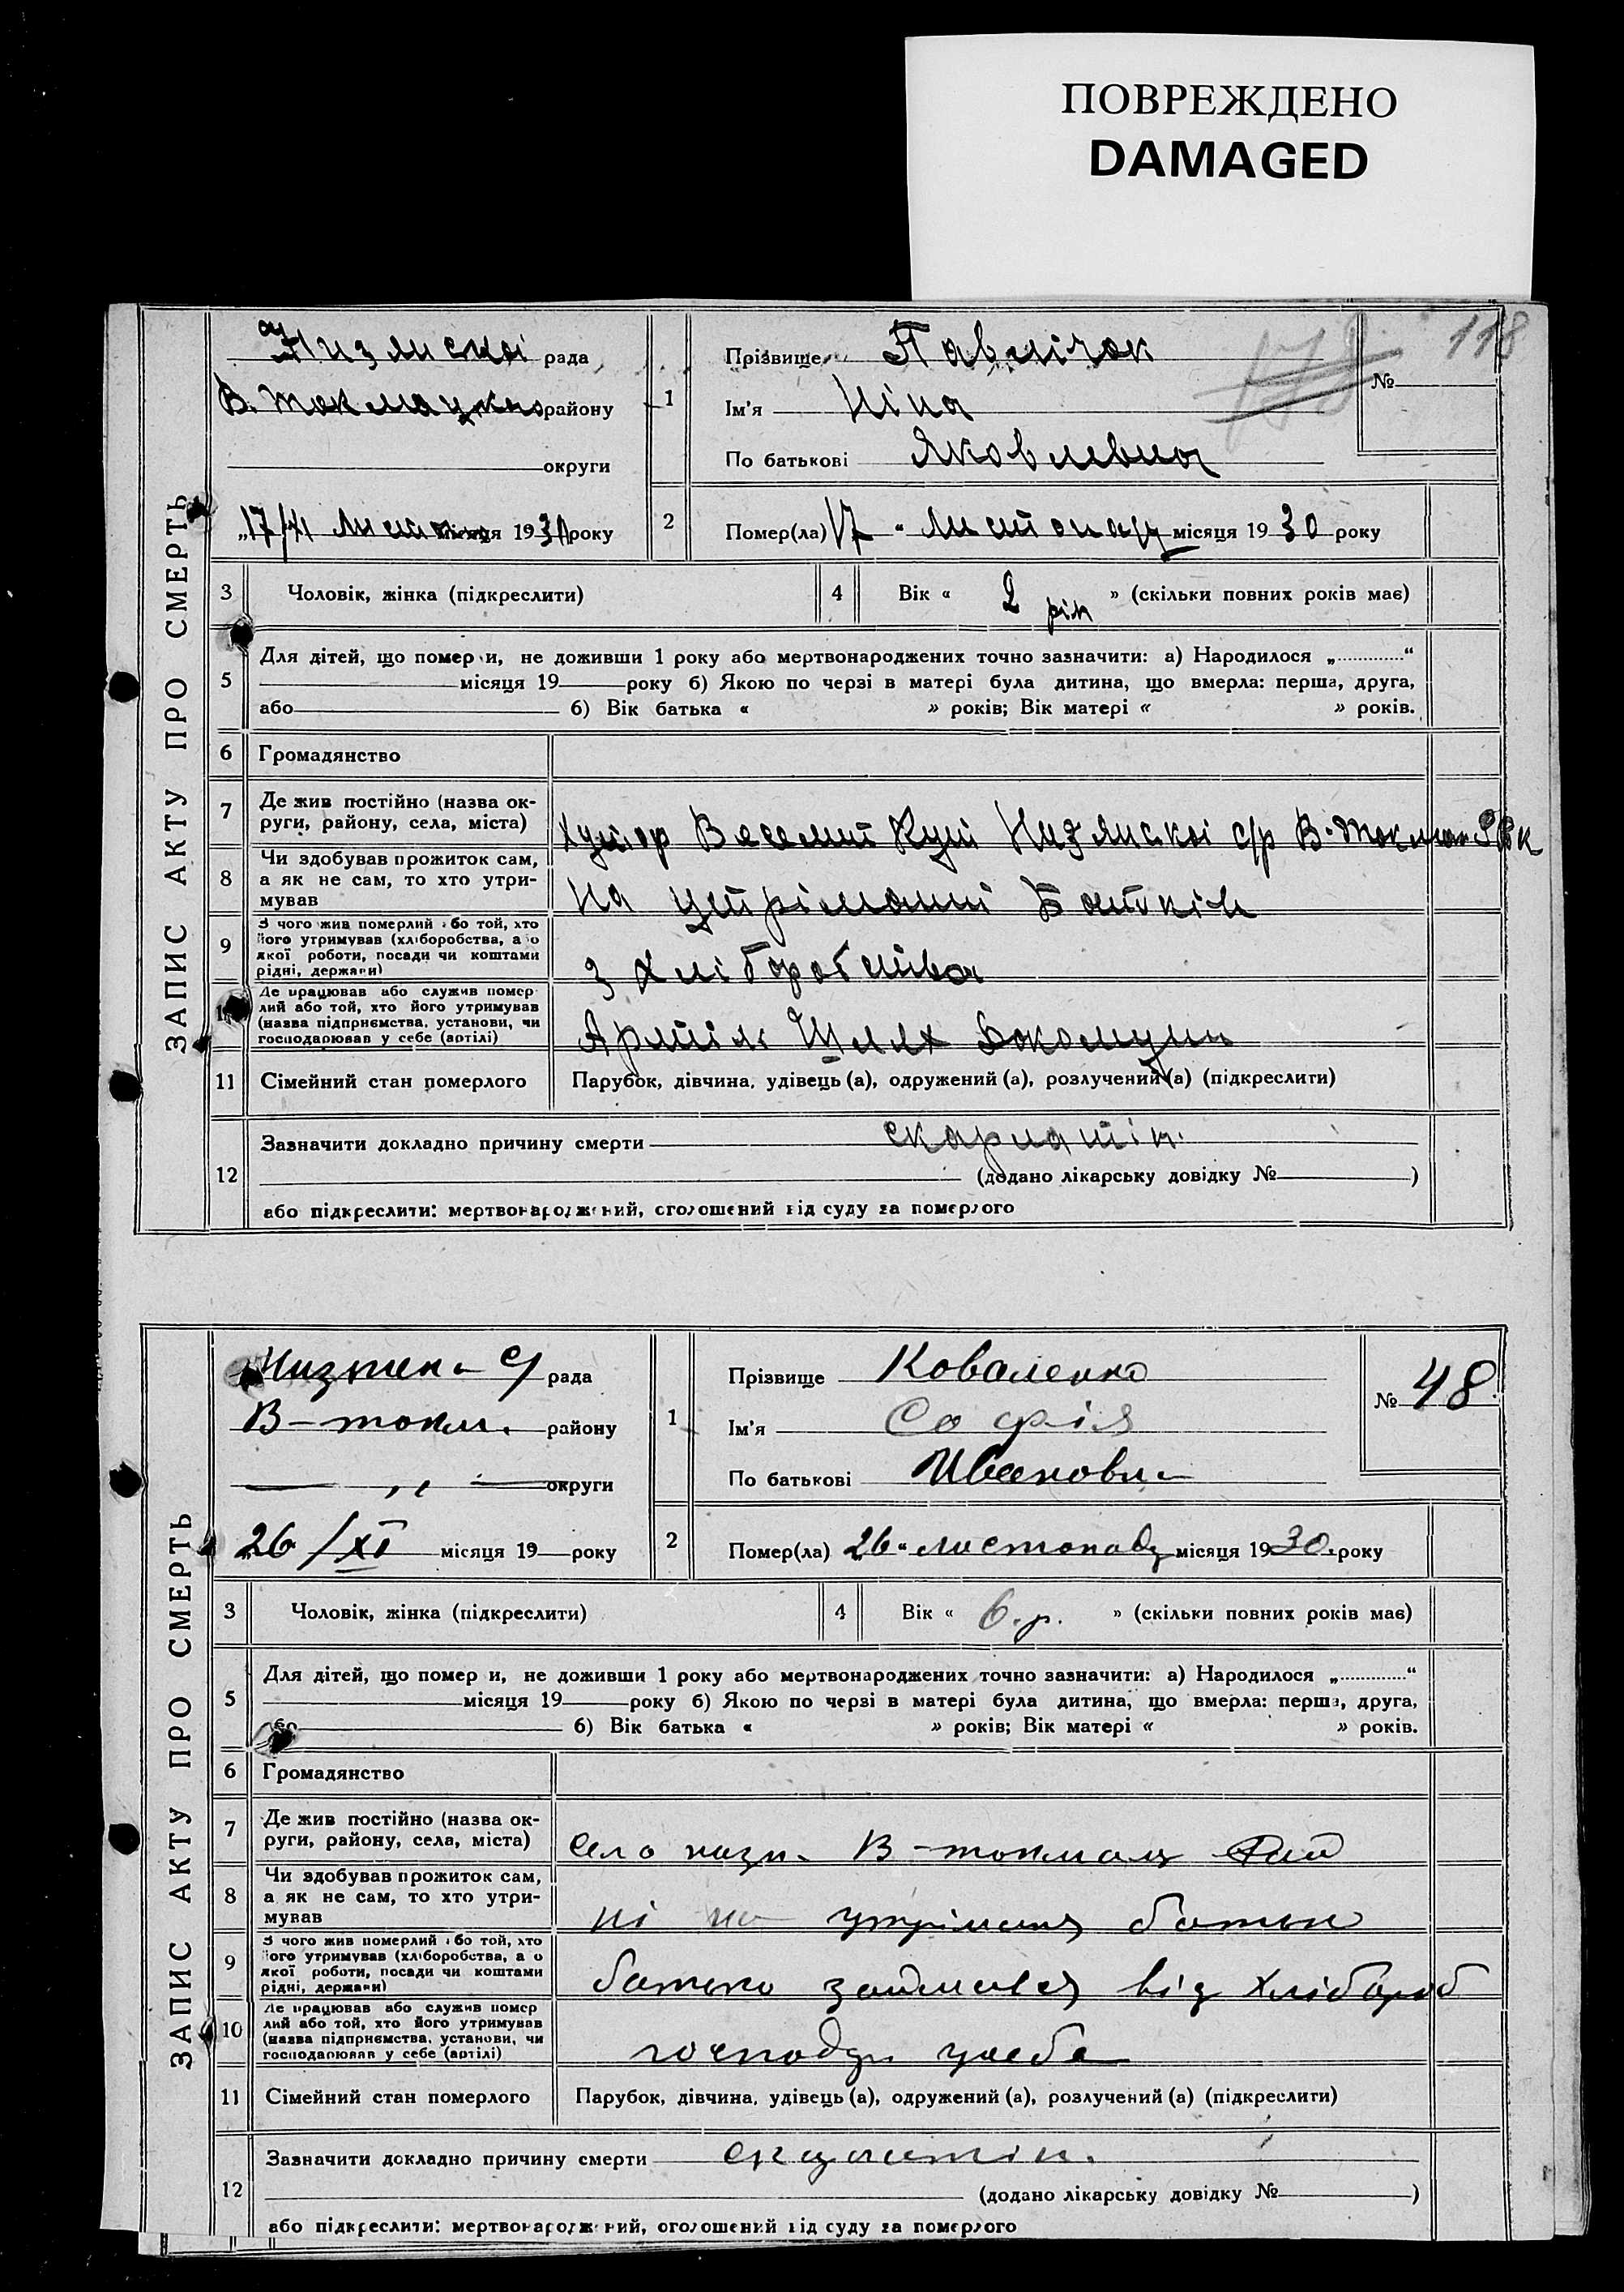 ПОВРЕЖДЕНО
DAMAGED
ЗАПИС АКТУ ПРО СМЕРТЬ
рада
В. Токмацького району
округи
17/XI місяця 1930 року
118
№
1
Прізвище Павлічок
Ім'я Ніна
По батькові Яковлевна
2
Помер(ла) 17 " листопаду місяця 1930 року
3 Чоловік, жінка (підкреслити)
4 Вік « 2 рік » (скільки повних років має)
5 Для дітей, що помер и, не доживши 1 року або мертвонароджених точно зазначити: а) Народилося „.............“
місяця 19 року б) Якою по черзі в матері була дитина, що вмерла: перша, друга,
або б) Вік батька « » років; Вік матері « » років.
6 Громадянство
7 Де жив постійно (назва ок-
руги, району, села, міста)
хутор Веселий Кут с/р В. Токмац.
8 Чи здобував прожиток сам,
а як не сам, то хто утри-
мував
на утріманні Батьків
9 З чого жив померлий або той, хто
його утримував (хліборобства, або
якої роботи, посади чи коштами
рідні, держави)
з хліборобства
10 Де працював або служив помер
лий або той, хто його утримував
(назва підприємства, установи, чи
господарював у себе (артілі)
Артіль Шлях Докомуни
11 Сімейний стан померлого
Парубок, дівчина, удівець (а), одружений (а), розлучений (а) (підкреслити)
12 Зазначити докладно причину смерти скарлатін.
(додано лікарську довідку № )
або підкреслити: мертвонароджений, оголошений від суду за померлого
ЗАПИС АКТУ ПРО СМЕРТЬ
рада
В-токм. району
— „ — округи
26/XI місяця 19 року
№ 48
1
Прізвище Коваленко
Ім'я Софія
По батькові Ивановн
2
Помер(ла) 26 " листопаду місяця 1930 року
3 Чоловік, жінка (підкреслити)
4 Вік « 6.р. » (скільки повних років має)
5 Для дітей, що помер и, не доживши 1 року або мертвонароджених точно зазначити: а) Народилося „.............“
місяця 19 року б) Якою по черзі в матері була дитина, що вмерла: перша, друга,
б) Вік батька « » років; Вік матері « » років.
6 Громадянство
7 Де жив постійно (назва ок-
руги, району, села, міста)
село В-токмац
8 Чи здобував прожиток сам,
а як не сам, то хто утри-
мував
ні на утріманя батька
9 З чого жив померлий або той, хто
його утримував (хліборобства, а о
якої роботи, посади чи коштами
рідні, держави)
батько займався від хлібороб
10 Де працював або служив помер
лий або той, хто його утримував
(назва підприємства, установи, чи
господарював у себе (артілі)
господар усебе
11 Сімейний стан померлого
Парубок, дівчина, удівець (а), одружений (а), розлучений (а) (підкреслити)
12 Зазначити докладно причину смерти
(додано лікарську довідку № )
або підкреслити: мертвонароджений, оголошений від суду за померлого